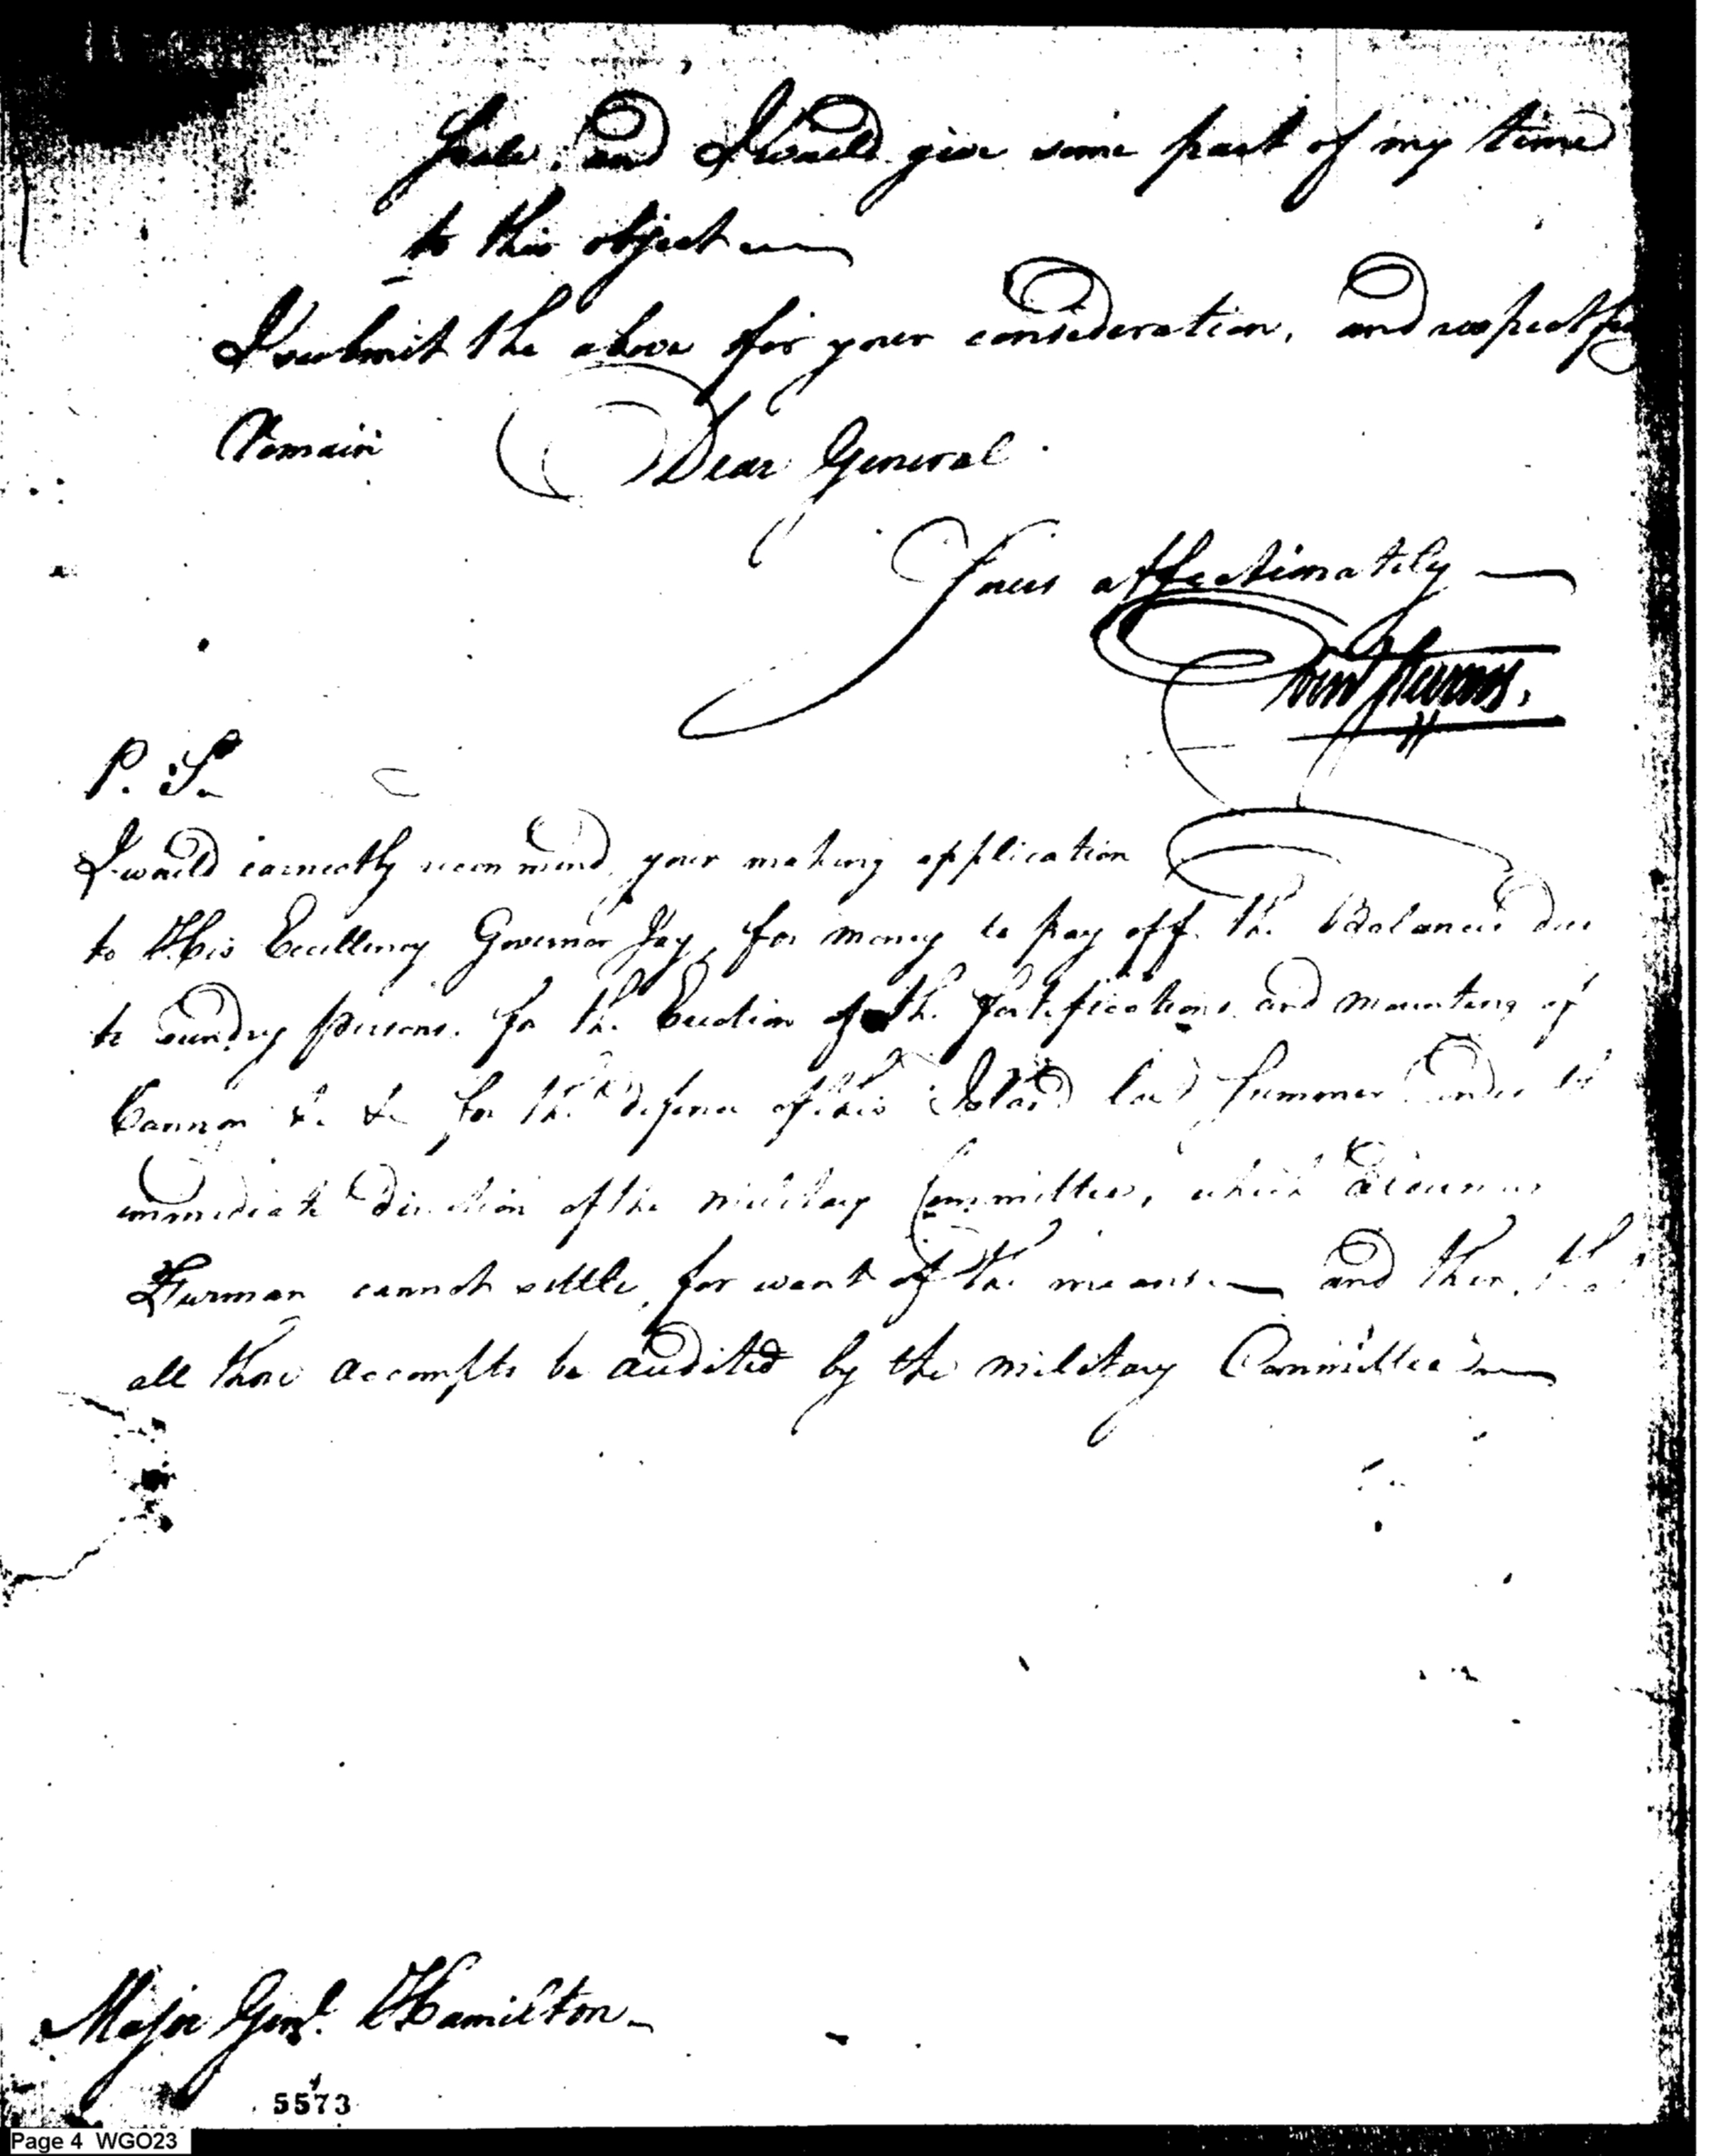 Scale. and I would give some part of my time
to this object
I submit the above for your consideration, and respectfully
Remain Dear General
Yours affectionately
Eben Stevens.
P. S.
I would earnestly recommend, your making application
to His Excellency Governor Jay, for money to pay off the Balances due
to sundry persons. for the Erection of the fortifications and mounting of
Cannon &c &c for the defence of this Island last Summer under the
immediate direction of the military Committee, which
Furman cannot settle, for want of the means and then, that
all those accompts be audited by the military Committee
Major Genl. Hamilton
5573
Page 4 WGO23